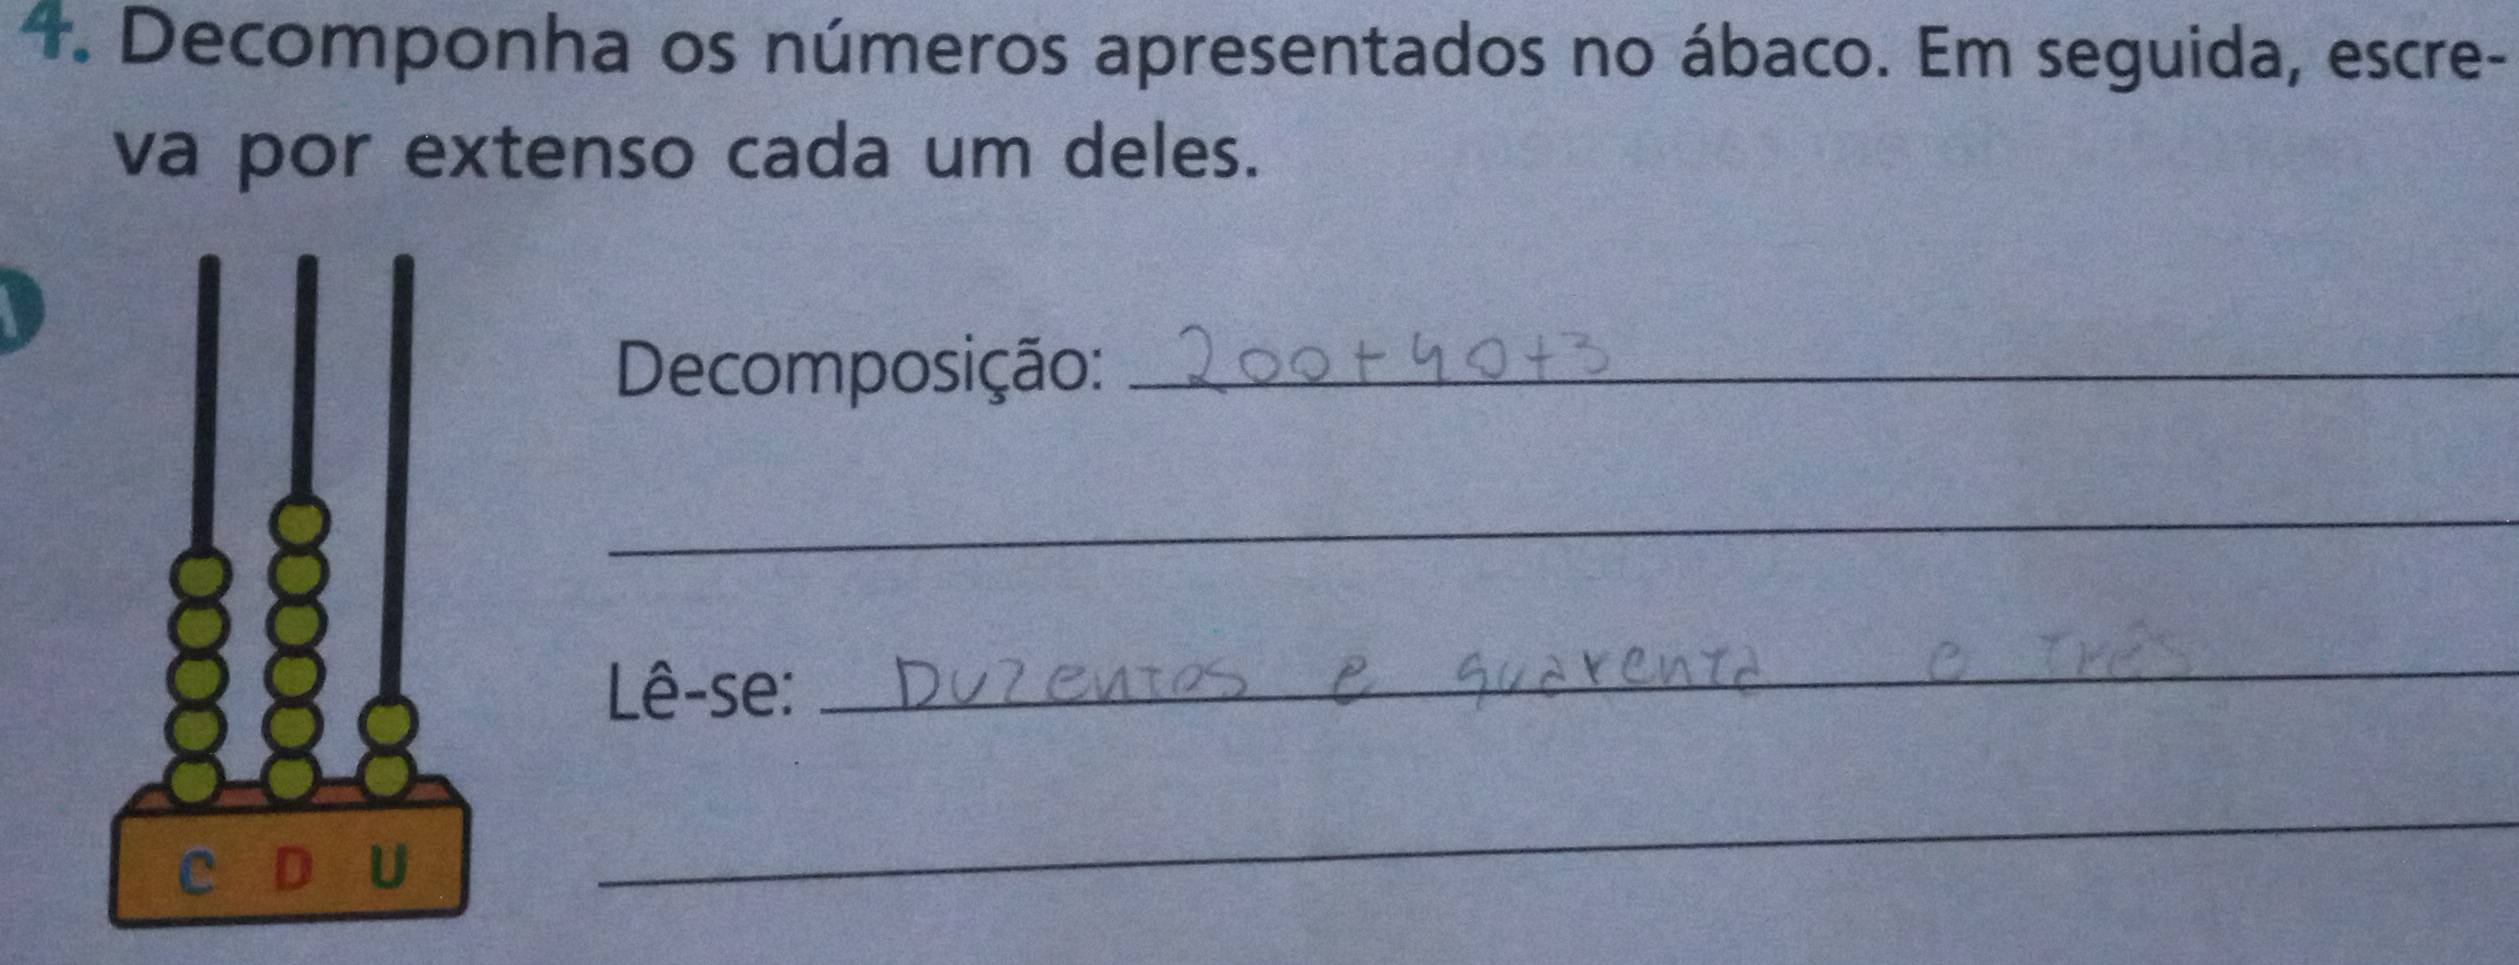 4. Decomponha os números apresentados no ábaco. Em seguida, escre-
va por extenso cada um deles.
Decomposição: 200+40+3
Lê-se: Duzentos e quarenta e três
C D U